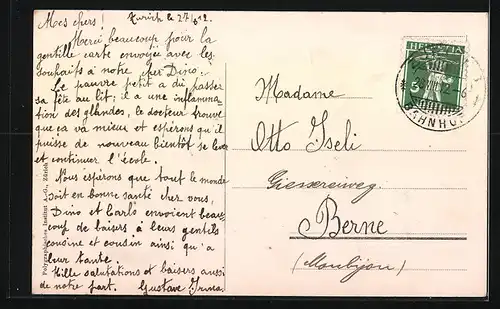 Zurich le 27/6 12.
Mes chers!
Merci beaucoup pour la
gentille carte envoyée avec les
souhaits à notre cher Dino.
Le pauvre petit a dû passer
sa fête au lit; il a une inflamma
tion des glandes. le docteur trouve
que ça va mieux et espérons qu'il
puisse de nouveau bientôt se lever
et continuer l'école.
Nous espérons que tout le monde
soit en bonne santé chez vous,
Dino et Carlo envoient beau-
coup de baisers à leurs gentils
cousine et cousin ainsi qu'à
leur tante.
Mille salutations et baisers aussi
de notre part. Gustave Irma
Polygraphisches Institut A.-G., Zürich
HELVETIA
5
BAHNHOF
Madame
Otto Iseli
Giessereiweg.
Berne
(Monbijou)